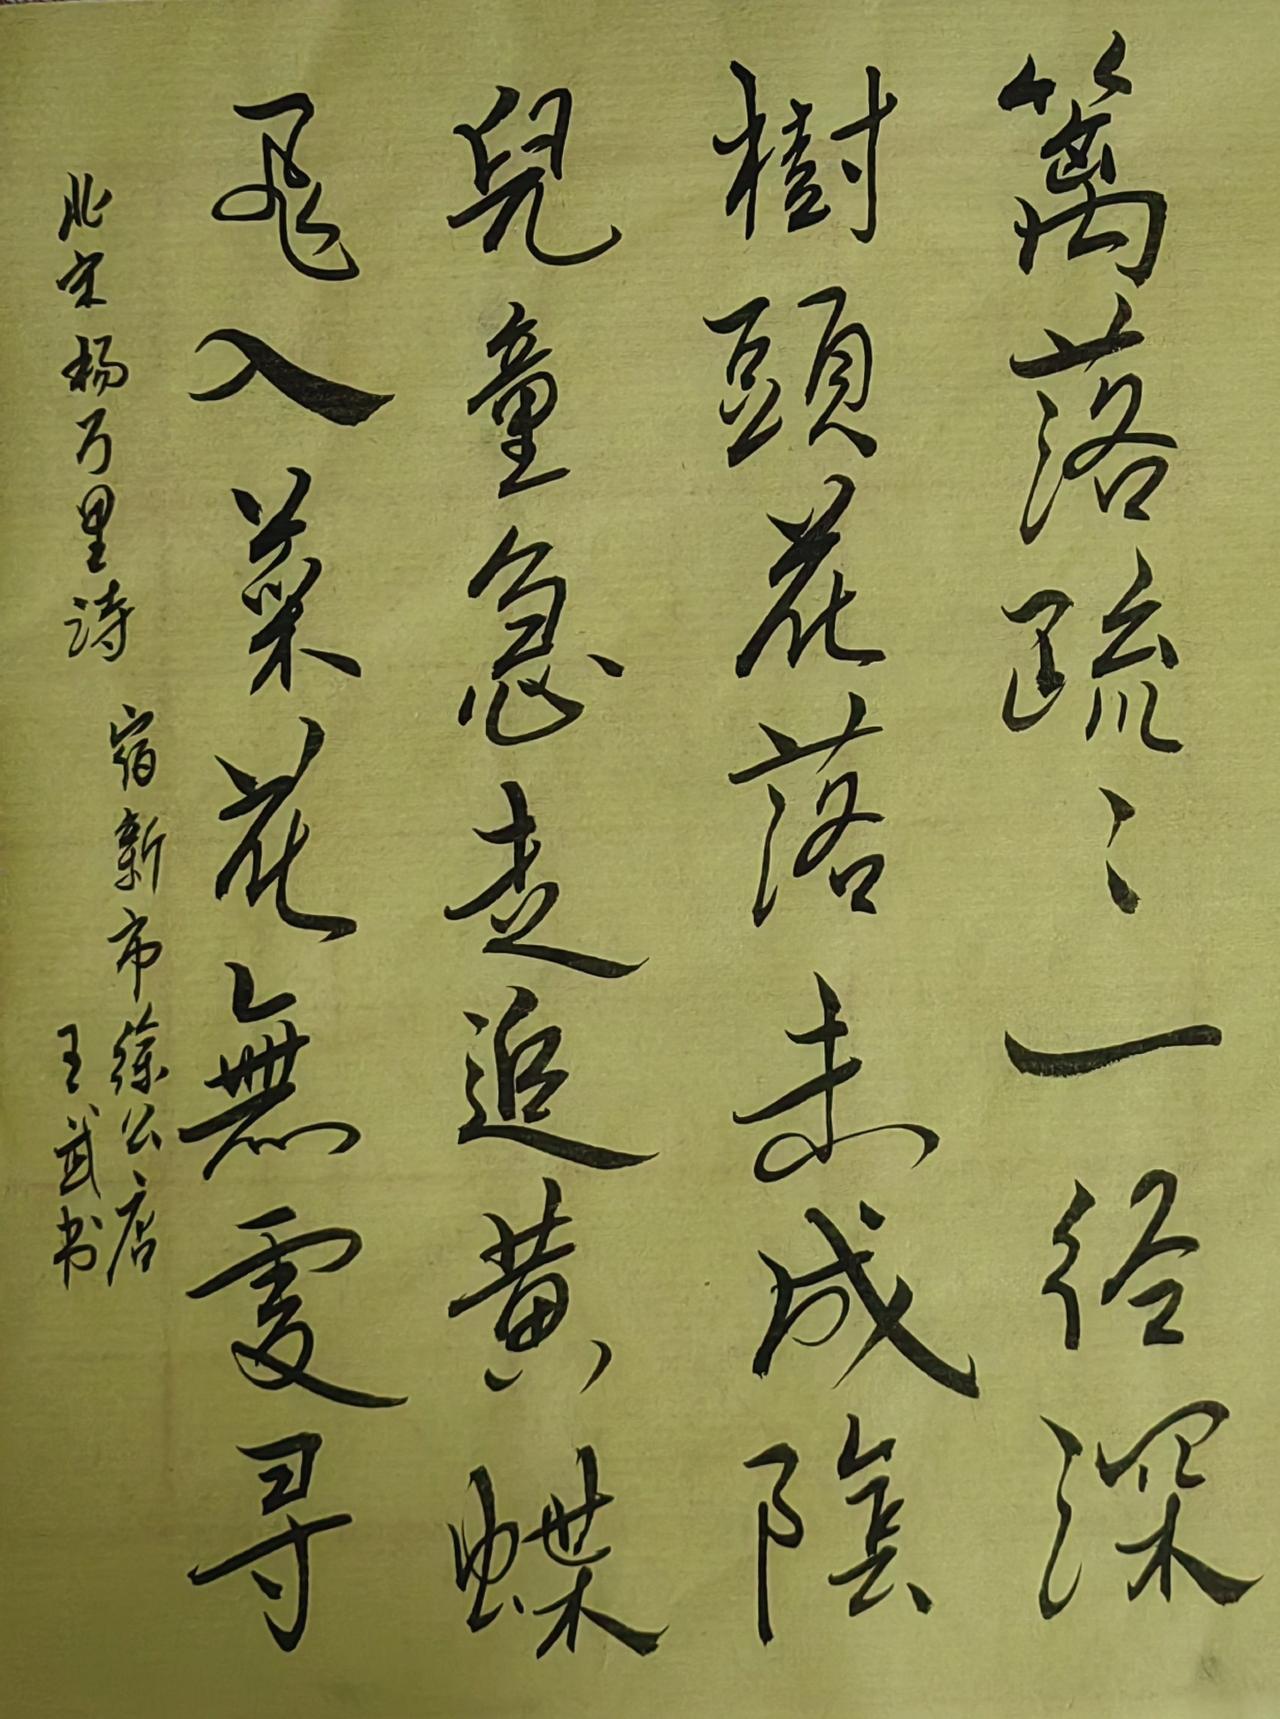 篱落疏〻一径深
樹頭花落未成陰
兒童急走追黄蝶
飛入菜花無處寻
北宋杨万里诗
宿新市徐公店
王武书